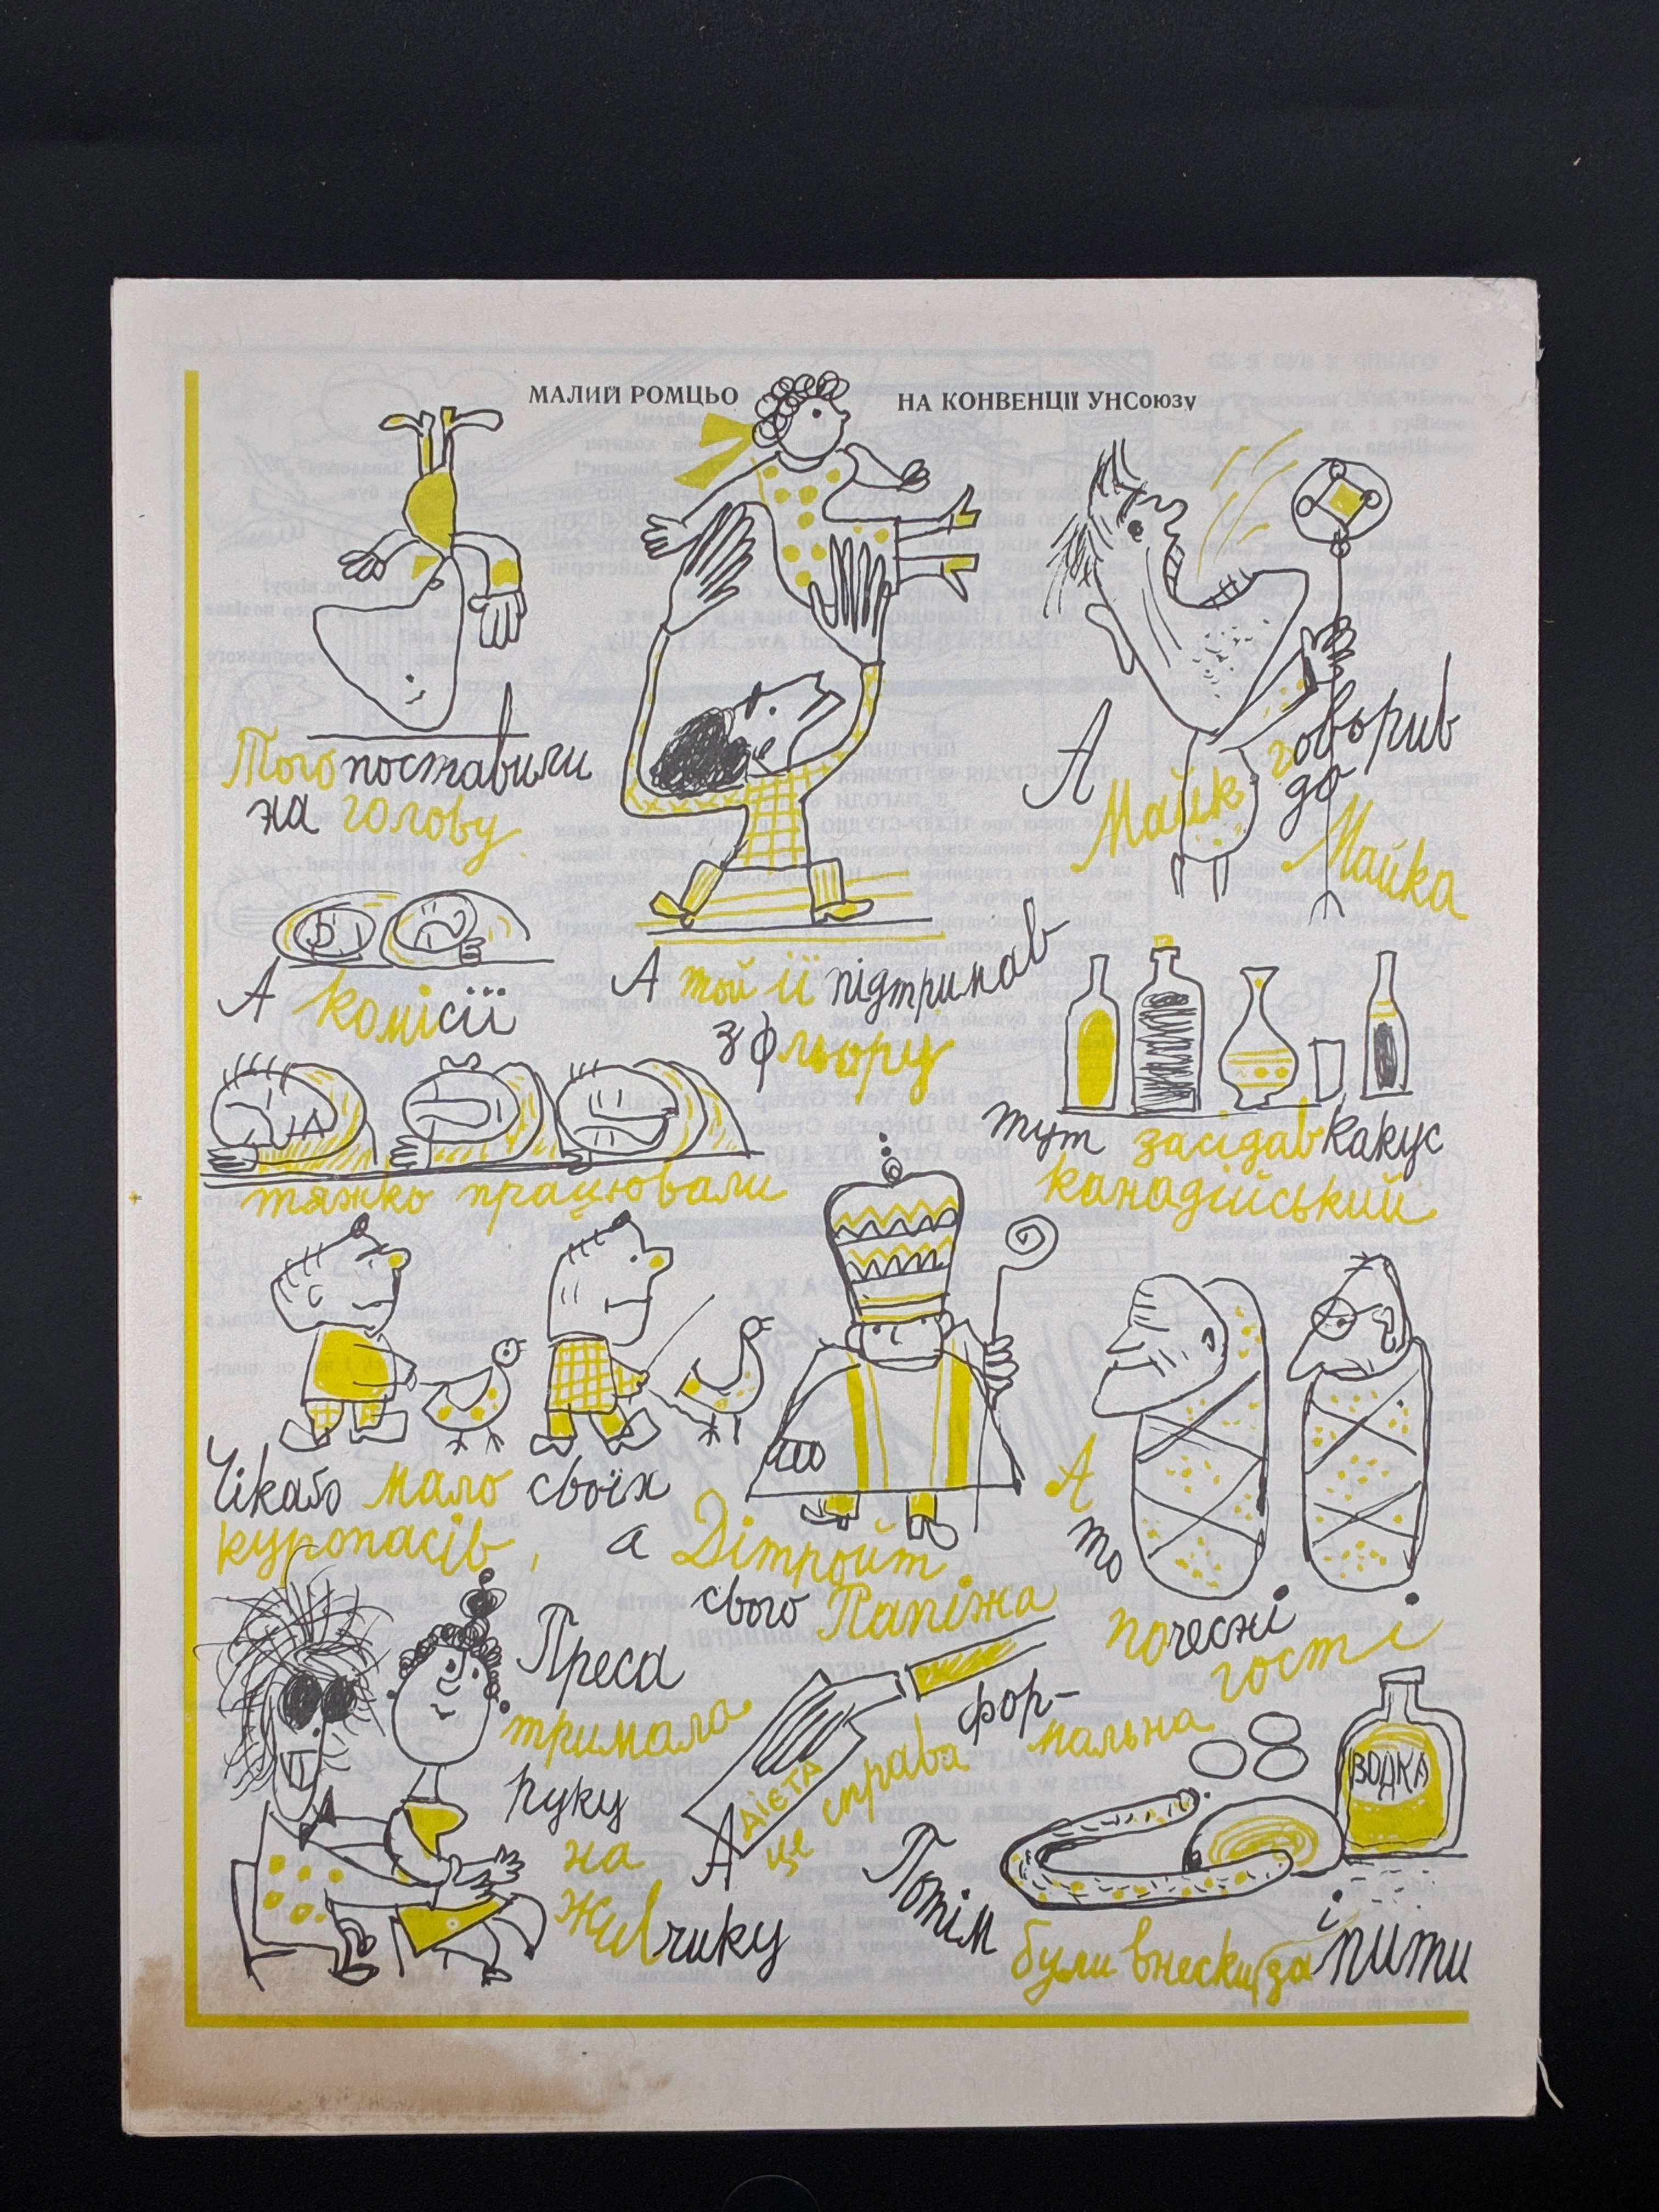 МАЛИЙ РОМЦЬО
НА КОНВЕНЦІЇ УНСоюзу
Того поставили
на голову
А той її підтримав
з фльору
А Майк говорив
до Майка
А комісії
тяжко працювали
тут засідав какус
канадійський
Чікаґо мало своїх
куропасів,
а Дітройт
свого Папіжа
А то
почесні
гості
Преса
тримала
руку
на
живчику
ДІЄТА
А це справа фор-
мальна
ВОДКА
Потім
були внески за і пити